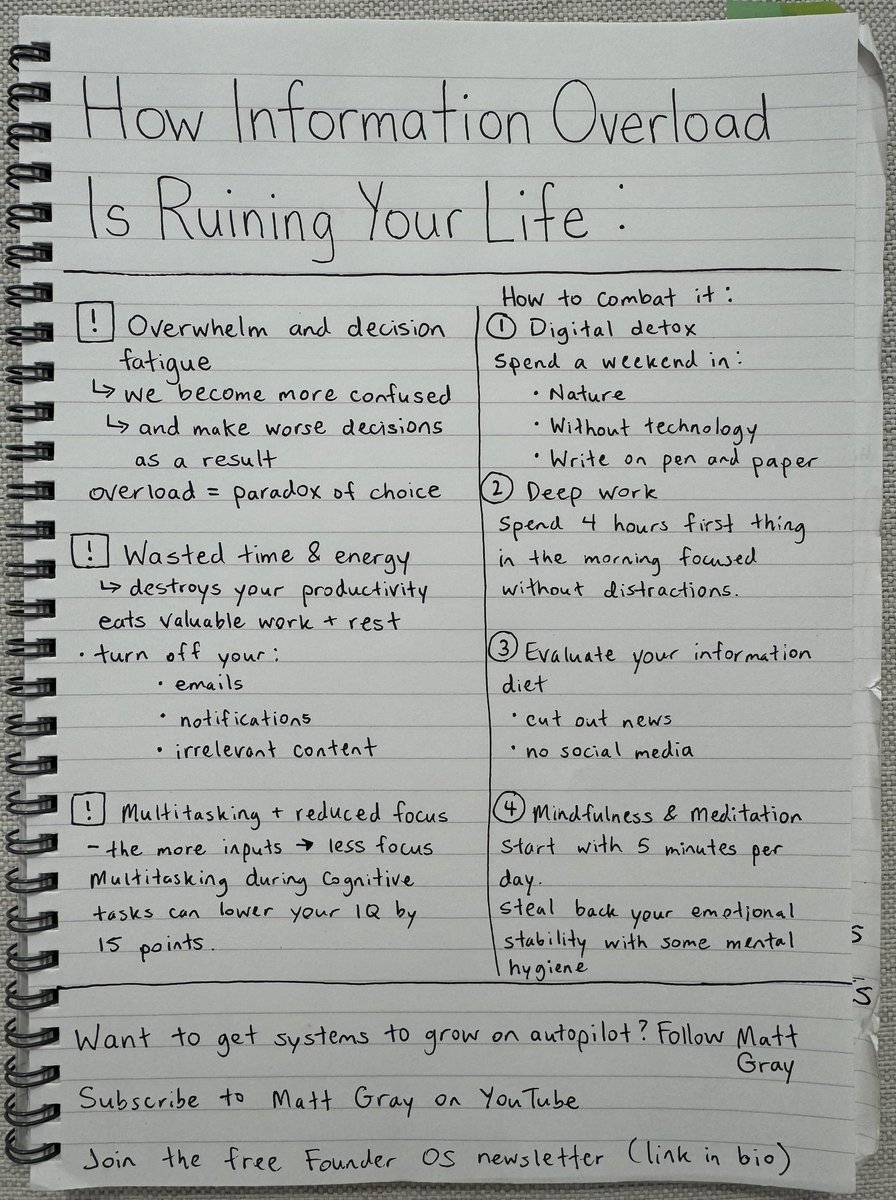 How Information Overload
Is Ruining Your Life :
! Overwhelm and decision
fatigue
↳ we become more confused
↳ and make worse decisions
as a result
overload = paradox of choice
! Wasted time & energy
↳ destroys your productivity
eats valuable work + rest
· turn off your:
· emails
· notifications
· irrelevant content
! Multitasking + reduced focus
- the more inputs → less focus
Multitasking during cognitive
tasks can lower your IQ by
15 points.
How to combat it:
① Digital detox
Spend a weekend in:
· Nature
· Without technology
· Write on pen and paper
② Deep work
Spend 4 hours first thing
in the morning focused
without distractions.
③ Evaluate your information
diet
· cut out news
· no social media
④ Mindfulness & Meditation
Start with 5 minutes per
day.
Steal back your emotional
stability with some mental
hygiene
Want to get systems to grow on autopilot? Follow Matt
Gray
Subscribe to Matt Gray on YouTube
Join the free Founder OS newsletter (link in bio)